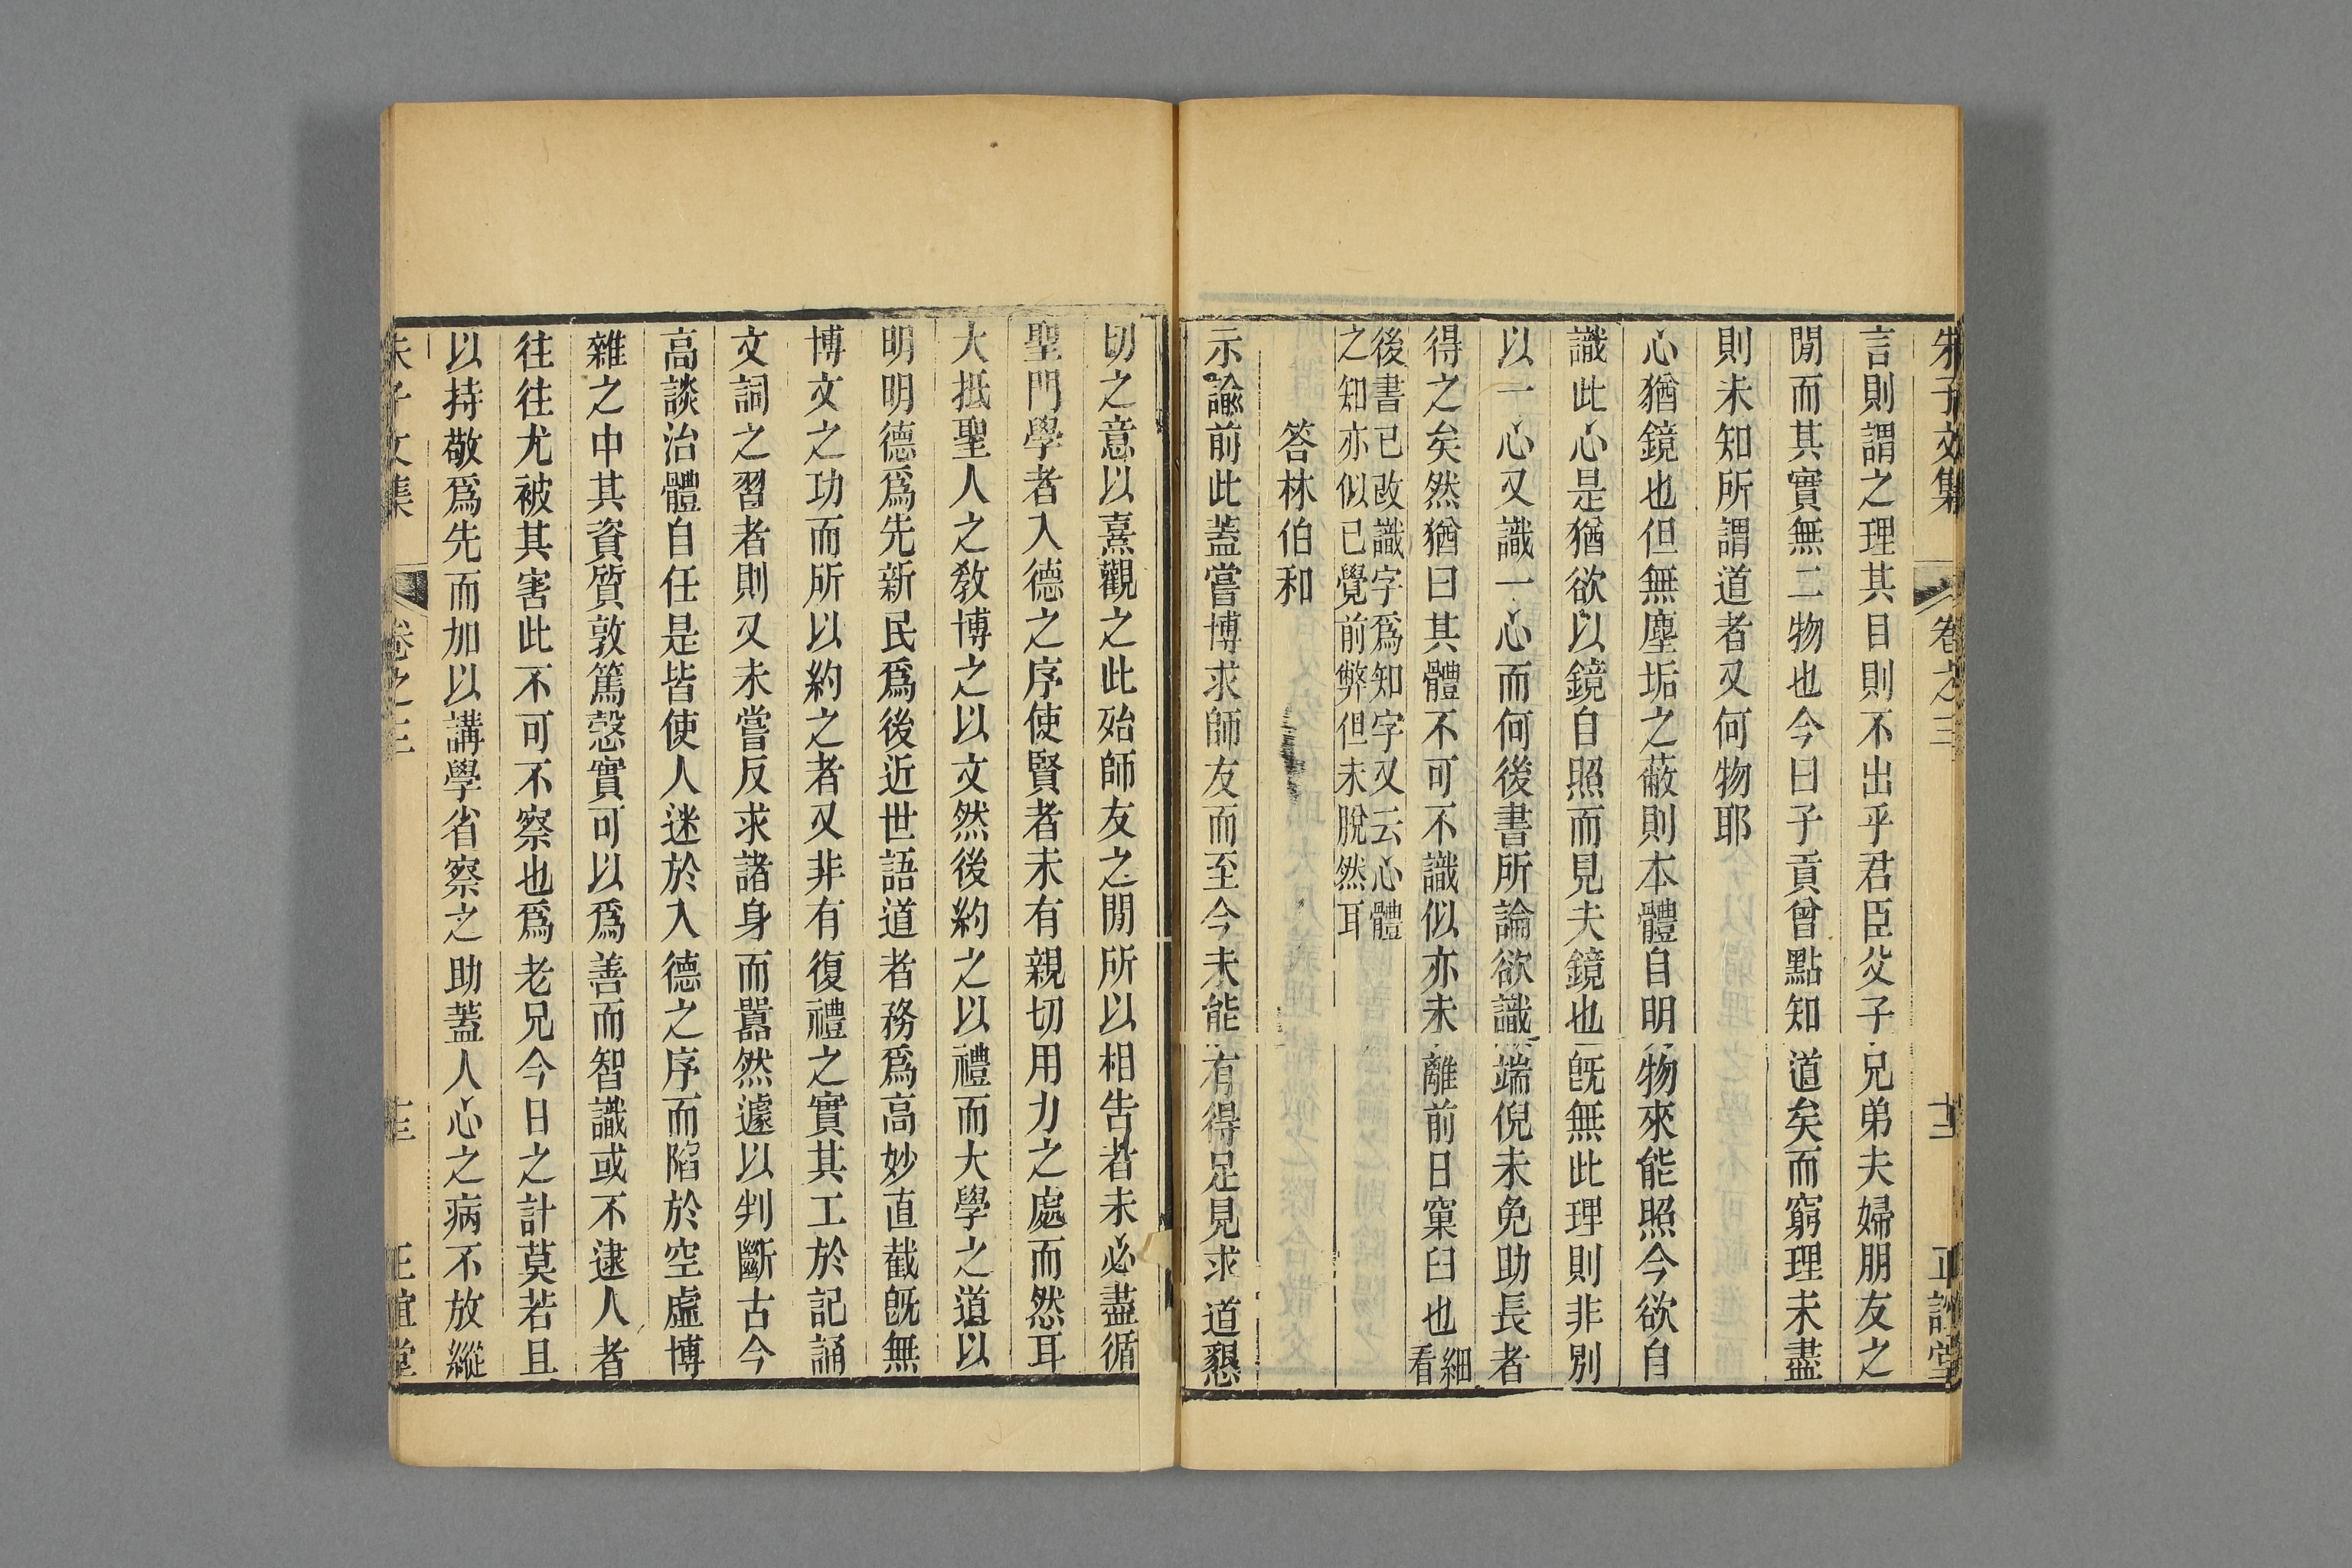 朱子文集 卷之三 十三 正誼堂
言則謂之理其目則不出乎君臣父子兄弟夫婦朋友之
閒而其實無二物也今日子貢曾點知道矣而窮理未盡
則未知所謂道者又何物耶
心猶鏡也但無塵垢之蔽則本體自明物來能照今欲自
識此心是猶欲以鏡自照而見夫鏡也旣無此理則非別
以一心又識一心而何後書所論欲識端倪未免助長者
得之矣然猶曰其體不可不識似亦未離前日窠臼也細看
後書已改識字爲知字又云心體
之知亦似已覺前弊但未脫然耳
答林伯和
示諭前此蓋嘗博求師友而至今未能有得足見求道懇
切之意以熹觀之此殆師友之閒所以相告者未必盡循
聖門學者入德之序使賢者未有親切用力之處而然耳
大抵聖人之敎博之以文然後約之以禮而大學之道以
明明德爲先新民爲後近世語道者務爲高妙直截旣無
博文之功而所以約之者又非有復禮之實其工於記誦
文詞之習者則又未嘗反求諸身而囂然遽以判斷古今
高談治體自任是皆使人迷於入德之序而陷於空虛博
雜之中其資質敦篤慤實可以爲善而智識或不逮人者
往往尤被其害此不可不察也爲老兄今日之計莫若且
以持敬爲先而加以講學省察之助蓋人心之病不放縱
朱子文集 卷之三 十三 正誼堂